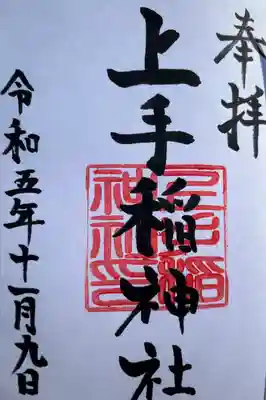 奉拝
上手稲神社
令和五年十一月九日